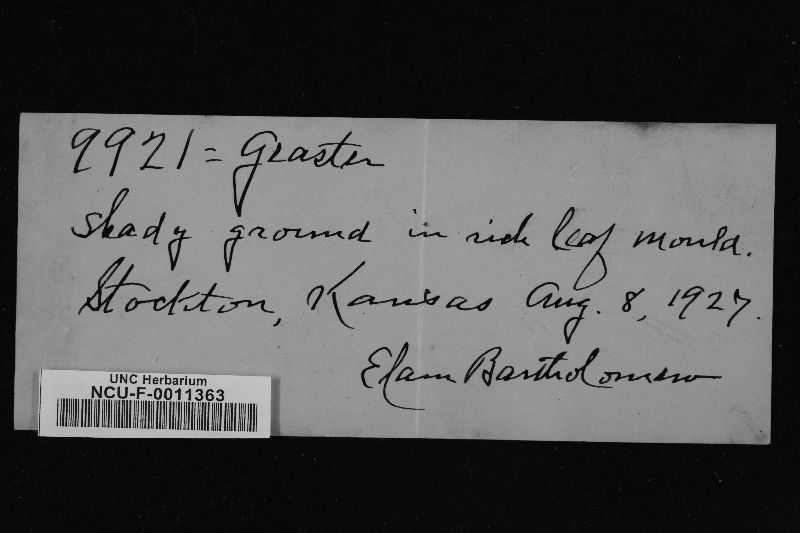 9921 = Geaster
shady ground in rich leaf mould.
Stockton, Kansas Aug. 8, 1927.
Elam Bartholomew
UNC Herbarium
NCU-F-0011363